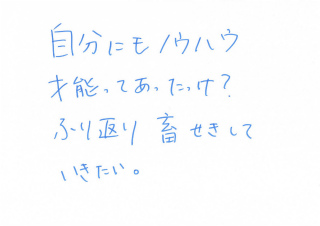 自分にもノウハウ
才能ってあったっけ？
ふり返り 畜せきして
いきたい。